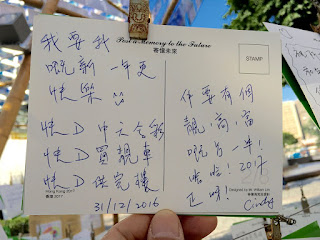 Post a Memory to the Future
寄信未來
STAMP
我要我
嘅新一年更
快樂
快D 中六合彩
快D 買靚車
快D 供完樓
31/12/2016
Hong Kong 2017
香港 2017
仲要有個
靚,高,富
嘅肖一年!
嘻嘻! 2017
正呀!
Cindy
Designed by Mr. William Lim